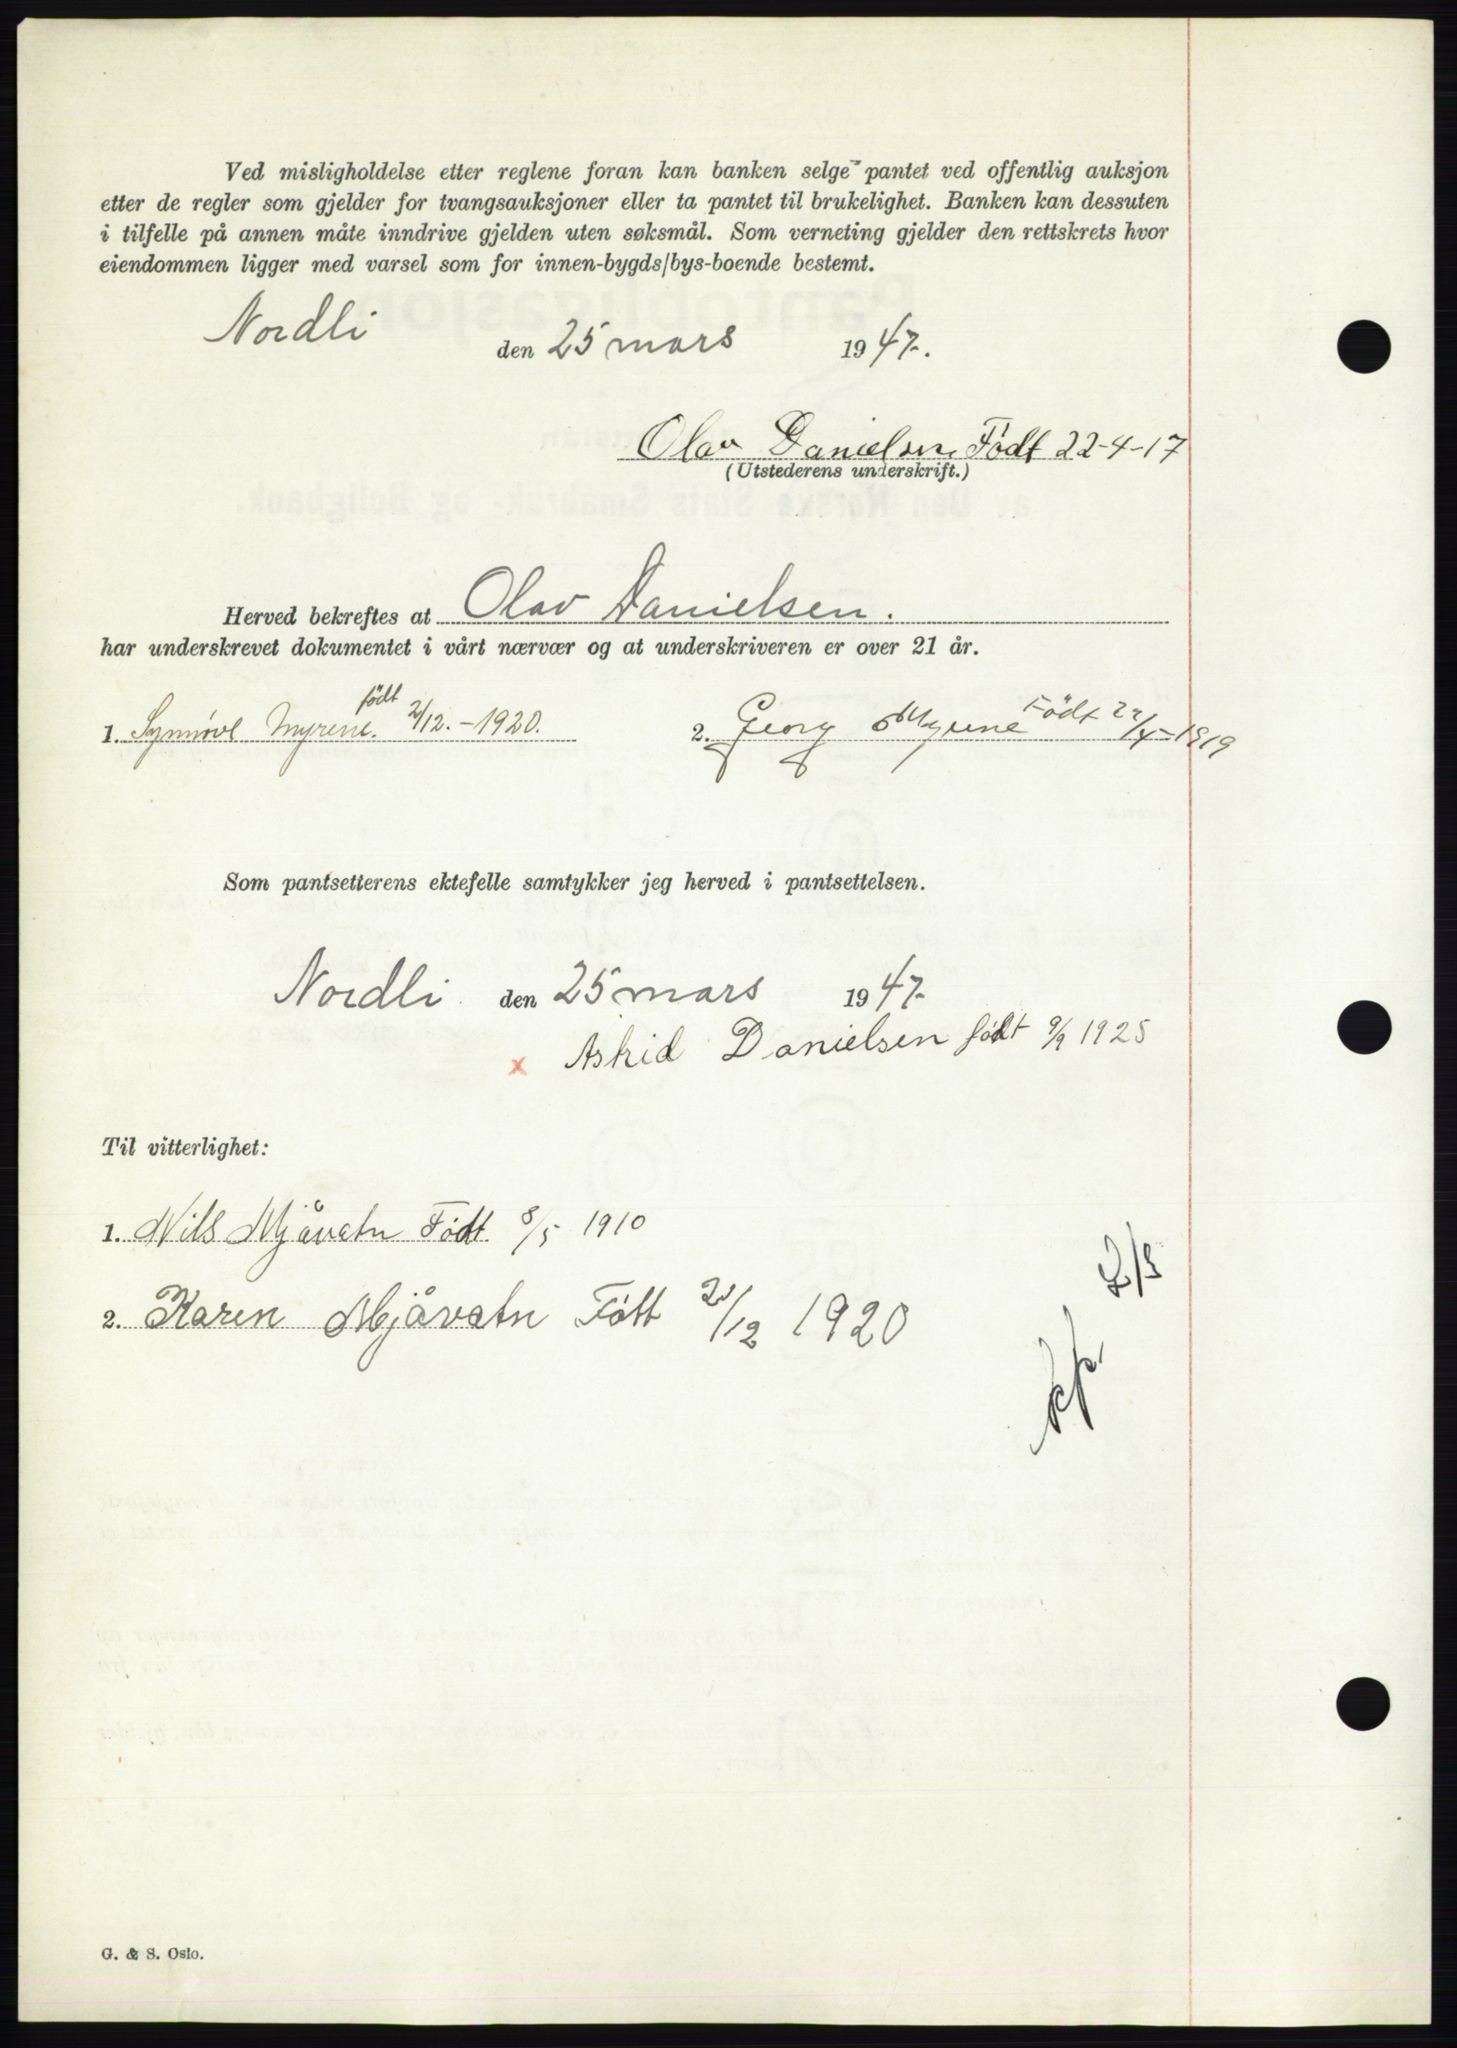 Ved misligholdelse etter reglene foran kan banken selge pantet ved offentlig auksjon
etter de regler som gjelder for tvangsauksjoner eller ta pantet til brukelighet. Banken kan dessuten
i tilfelle på annen måte inndrive gjelden uten søksmål. Som verneting gjelder den rettskrets hvor
eiendommen ligger med varsel som for innen-bygds/bys-boende bestemt.
Nordli den 25 mars 1947.
Olav Danielsen Født 22-4-17
(Utstederens underskrift.)
Herved bekreftes at Olav Danielsen.
har underskrevet dokumentet i vårt nærvær og at underskriveren er over 21 år.
1. Synnøve Myrene. født 2/12. - 1920. 2. Georg Myrene Født /4-1919
Som pantsetterens ektefelle samtykker jeg herved i pantsettelsen.
Nordli den 25 mars 1947
x Astrid Danielsen født 9/9 1925
Til vitterlighet:
1. Nils Mjåvatn Født 8/5 1910
2. Karen Mjåvatn Fött /12 1920
G. & S. Oslo.